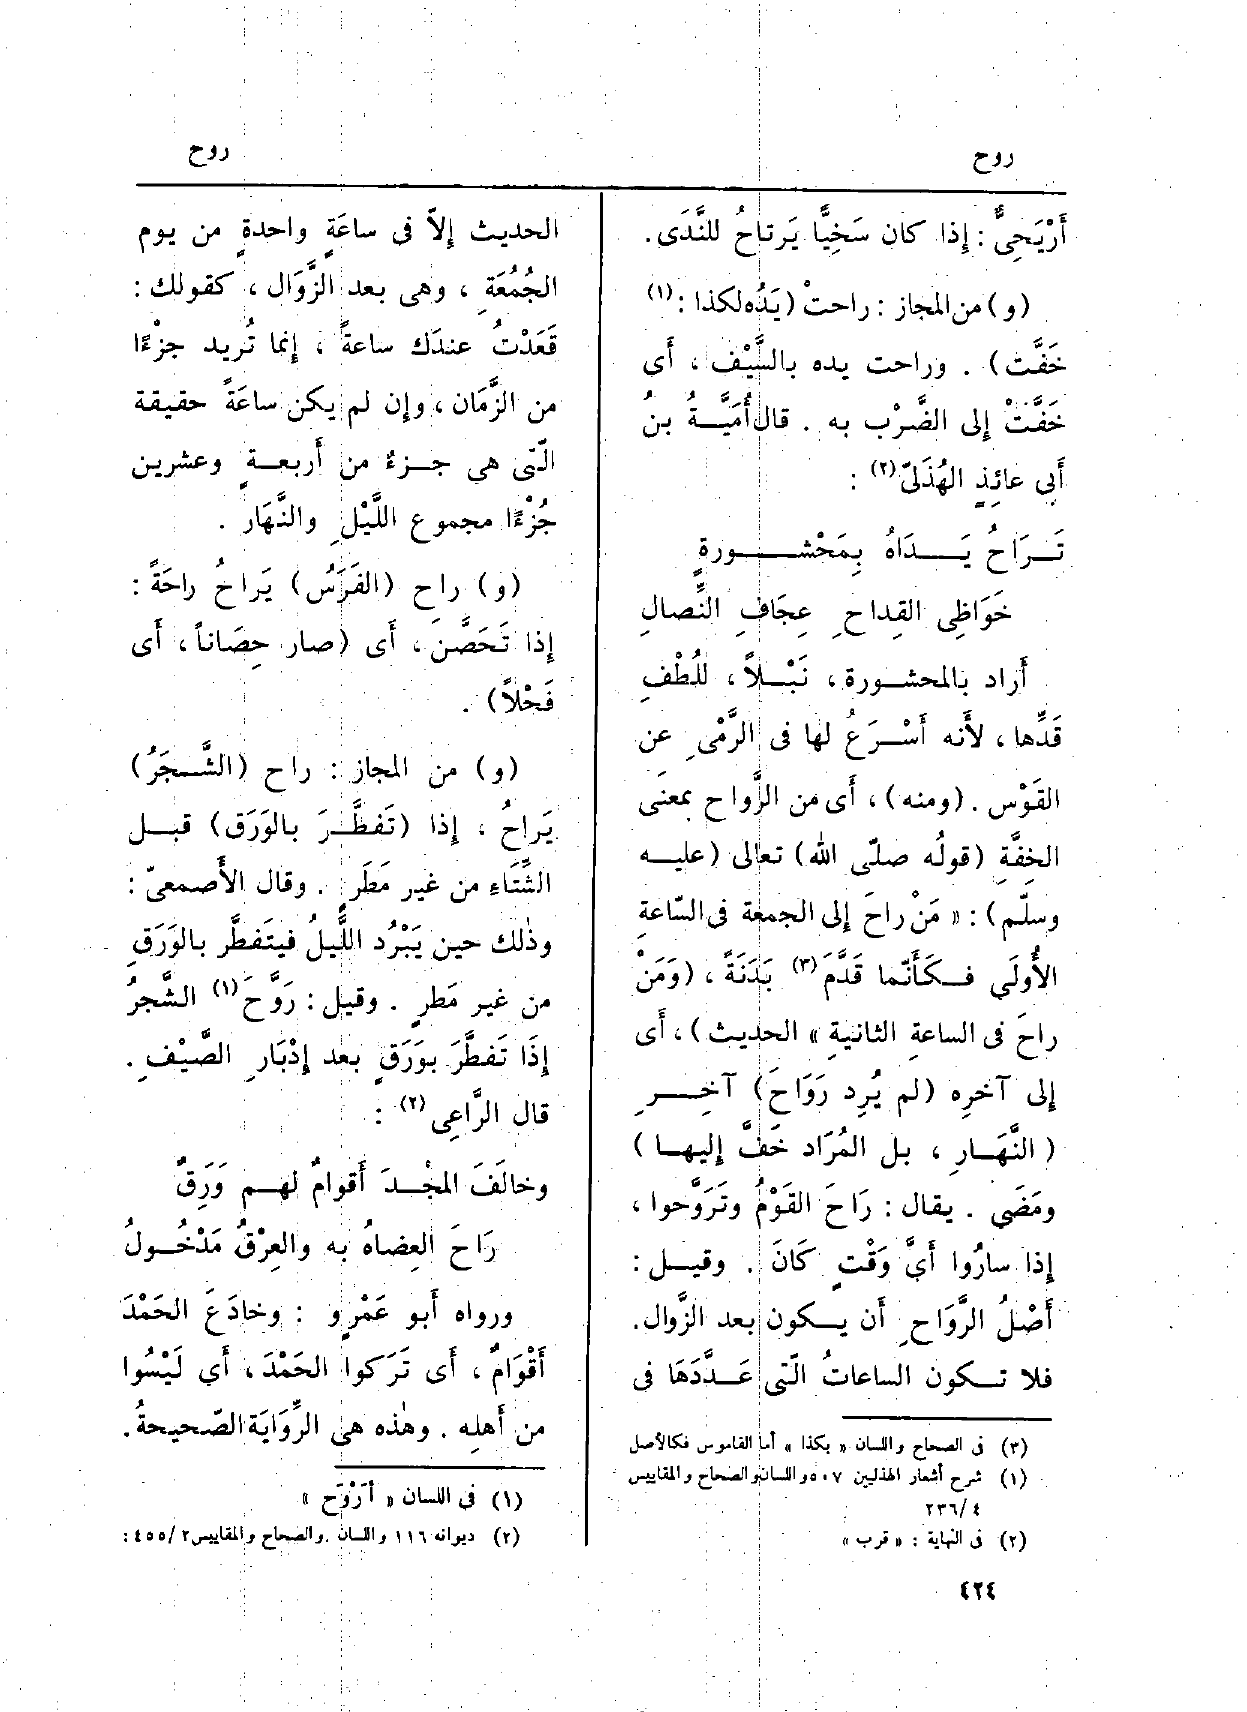 روح
روح
أَرْيَحِىٌّ : إذا كان سَخِيًّا يَرتاحُ للنَّدَى .
(و) من المجاز : راحتْ (يَدُه لكذا : (١)
خَفَّت) . وراحت يده بالسَّيْف ، أَى
خَفَّتْ إلى الضَّرْب به . قال أُمَيَّةُ بنُ
أَبى عائِذٍ الهُذَلىّ (٢) :
تَرَاحُ يَدَاهُ بِمَحْشورةٍ
خَوَاظِى القِداحِ عِجَافِ النِّصالِ
أَراد بالمحشورة ، نَبْلاً ، للُطْفِ
قَدِّها ، لأَنه أَسْرَعُ لها فى الرَّمْىِ عن
القَوْس . (ومنه) ، أَى من الرَّواح بمعنَى
الخِفَّةِ (قولُه صلّى الله) تعالى (عليه
وسلّم) : « مَنْ راحَ إلى الجمعة فى السّاعةِ
الأُولَى فكَأَنَّما قَدَّمَ (٣) بَدَنَةً ، (وَمَنْ
راحَ فى الساعةِ الثانيةِ » الحديث) ، أَى
إلى آخرِه (لم يُرِد رَوَاحَ) آخِرِ
(النَّهَارِ ، بل المُرَاد خَفَّ إليها)
ومَضَى . يقال : رَاحَ القَوْمُ وتَرَوَّحوا ،
إذا سارُوا أَىَّ وَقْتٍ كَانَ . وقيل :
أَصْلُ الرَّوَاحِ أَن يكون بعد الزَّوال .
فلا تكون الساعاتُ الّتى عَدَّدَهَا فى
(٣) فى الصحاح واللسان « بكذا » أما القاموس فكالأصل
(١) شرح أشعار الهذليين ٥٠٧ واللسان والصحاح والمقاييس
٤/٢٣٦
(٢) فى النهاية : « قرب »
الحديث إلاّ فى ساعَةٍ واحدةٍ من يوم
الجُمُعَةِ ، وهى بعد الزَّوَال ، كقولك :
قَعَدْتُ عندَك ساعةً ، إنما تُريد جزْءًا
من الزَّمَان ، وإن لم يكن ساعَةً حقيقة
الّتى هى جزءٌ من أَربعةٍ وعشرين
جُزْءًا مجموع اللَّيْلِ والنَّهَار .
(و) راح (الفَرَسُ) يَراحُ راحَةً :
إذا تَحَصَّنَ ، أَى (صار حِصَاناً ، أَى
فَحْلاً) .
(و) من المجاز : راح (الشَّجَرُ)
يَراحُ ، إذا (تَفَطَّرَ بالوَرَق) قبل
الشَّتَاءِ من غير مَطَرٍ . وقال الأَصمعىّ :
وذٰلك حين يَبْرُد اللَّيلُ فيتَفطَّر بالوَرَقِ
من غير مَطرٍ . وقيل : رَوَّحَ (١) الشَّجرُ
إذَا تَفطَّرَ بوَرَقٍ بعد إدْبَارِ الصَّيْفِ .
قال الرَّاعِى (٢) :
وخالَفَ المجْدَ أَقوامٌ لهم وَرِقٌ
رَاحَ العِضاهُ به والعِرْقُ مَدْخُولُ
ورواه أَبو عَمْرٍو : وخادَعَ الحَمْدَ
أَقْوَامٌ ، أَى تَرَكوا الحَمْدَ ، أَي لَيْسُوا
من أَهلِه . وهٰذه هى الرِّوَايَة الصّحيحةُ .
(١) فى اللسان « أرْوَح »
(٢) ديوانه ١١٦ واللسان والصحاح والمقاييس ٢/٤٥٥ :
٤٢٤